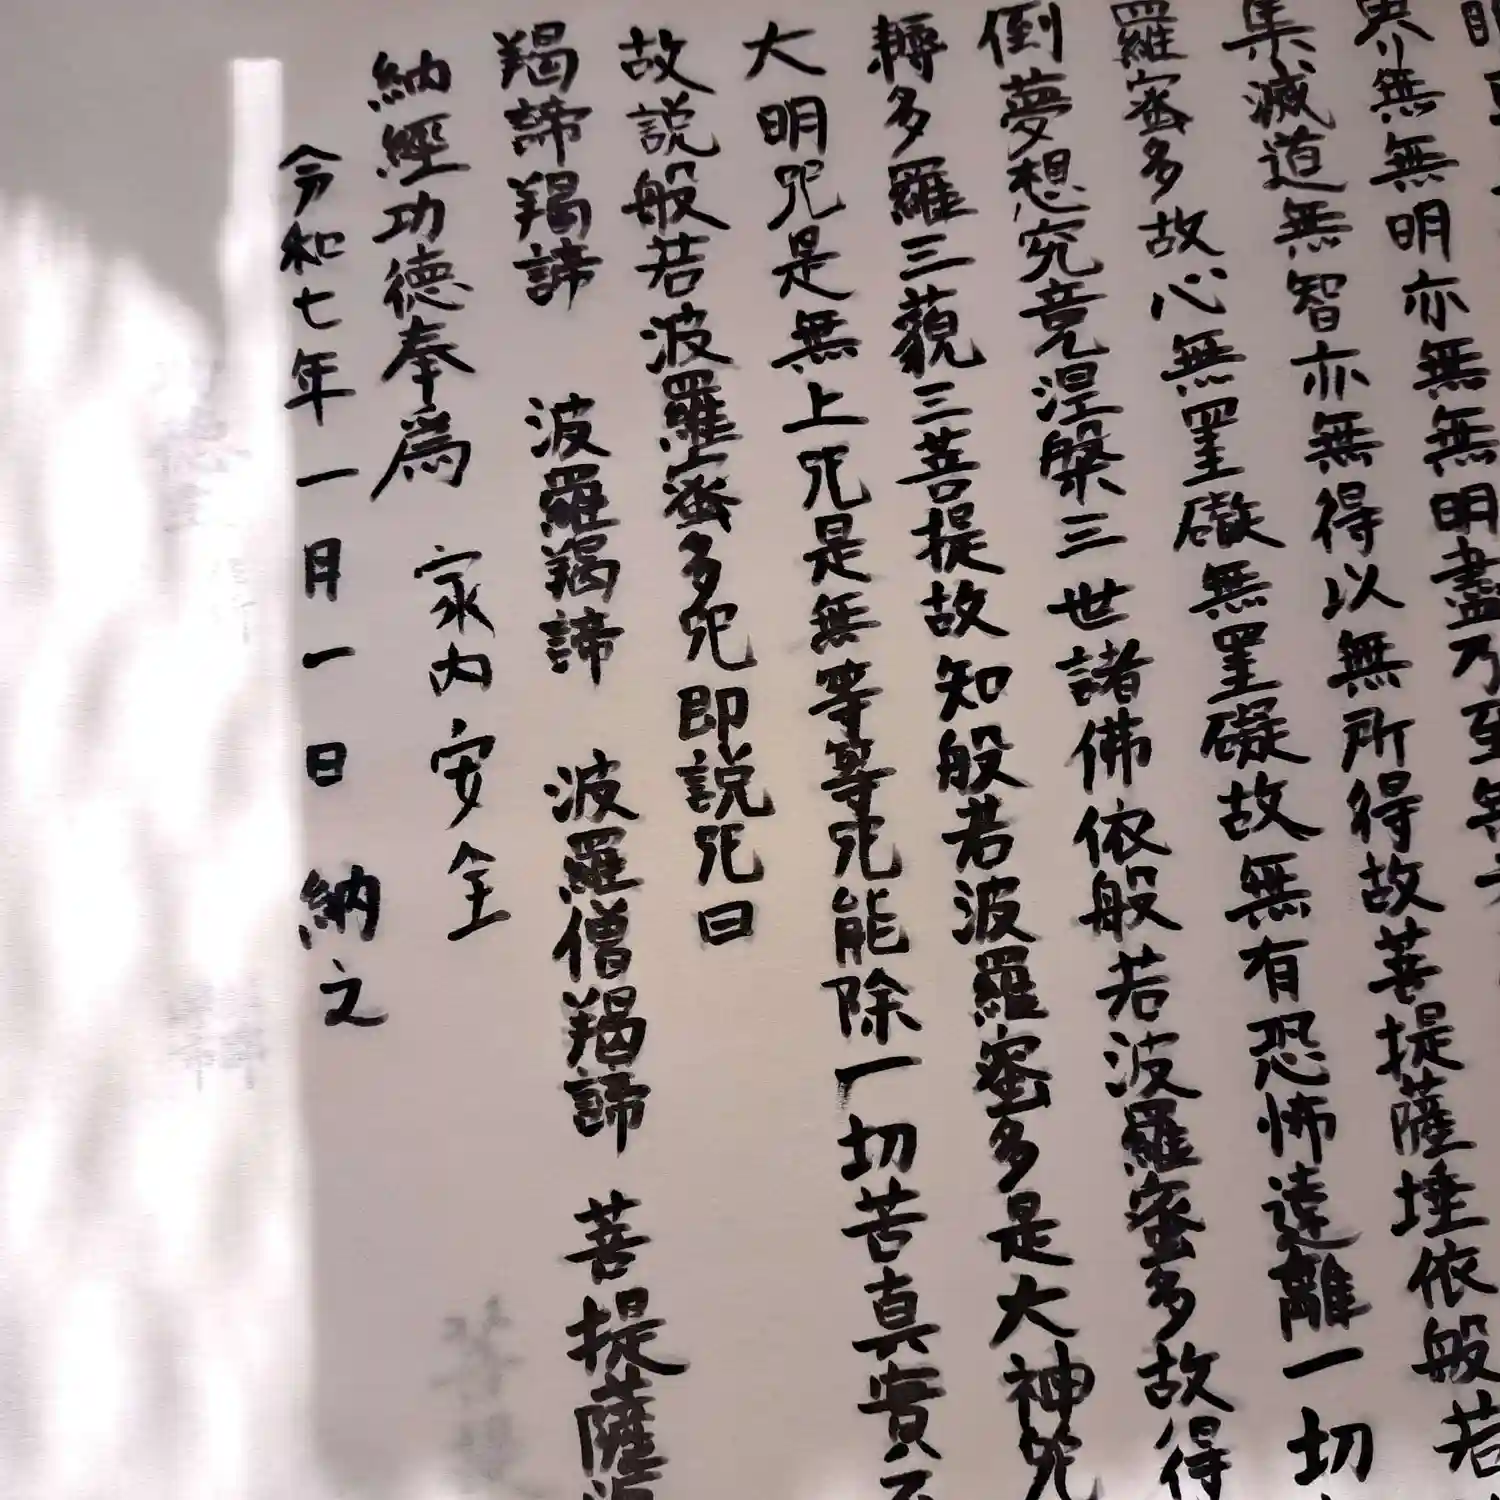 界無無明亦無無明盡乃至無
集滅道無智亦無得以無所得故菩提薩埵依般若
羅蜜多故心無罣礙無罣礙故無有恐怖遠離一切
倒夢想究竟涅槃三世諸佛依般若波羅蜜多故得
耨多羅三藐三菩提故知般若波羅蜜多是大神咒
大明咒是無上咒是無等等咒能除一切苦真實不
故説般若波羅蜜多咒即説咒曰
羯諦羯諦 波羅羯諦 波羅僧羯諦 菩提薩
納經功德奉爲 家内安全
令和七年一月一日 納之